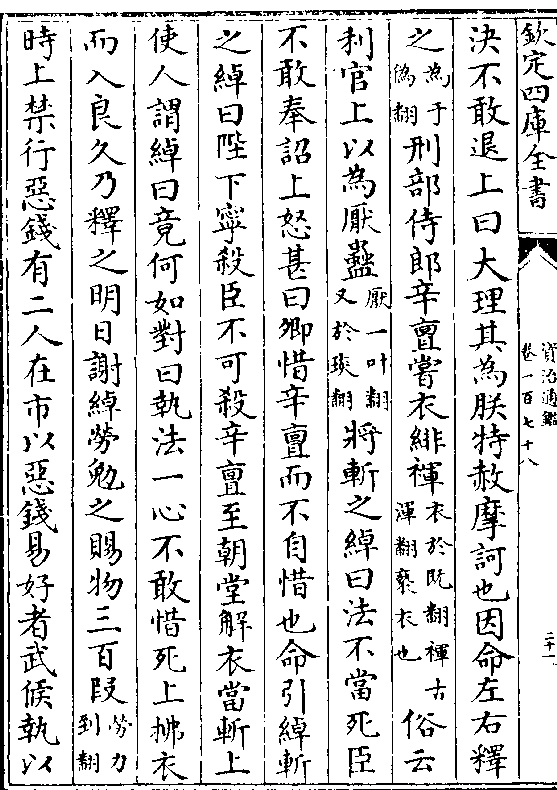 欽定四庫全書
資治通鑑
卷一百七十八
二十一
決不敢退上曰大理其為朕特赦摩訶也因命左右釋
之為于偽翻刑部侍郎辛亶嘗衣緋褌衣於既翻褌古渾翻褻衣也俗云
利官上以為厭蠱厭一叶翻又於琰翻將斬之綽曰法不當死臣
不敢奉詔上怒甚曰卿惜辛亶而不自惜也命引綽斬
之綽曰陛下寧殺臣不可殺辛亶至朝堂解衣當斬上
使人謂綽曰竟何如對曰執法一心不敢惜死上拂衣
而入良久乃釋之明日謝綽勞勉之賜物三百段勞力到翻
時上禁行惡錢有二人在市以惡錢易好者武候執以